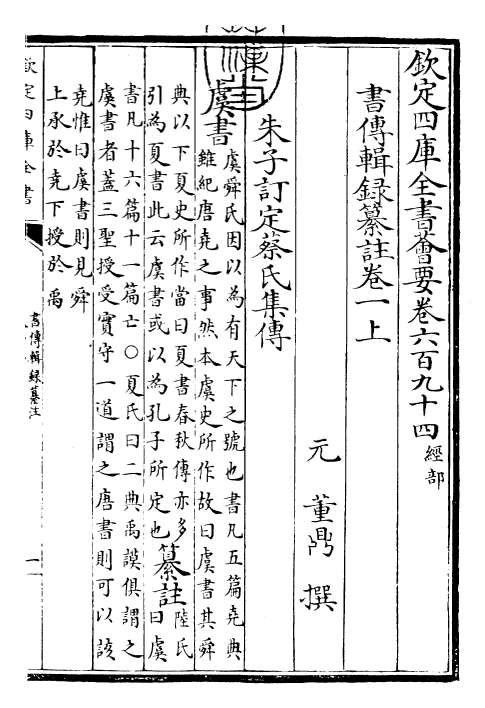 欽定四庫全書薈要卷六百九十四 經部
書傳輯録纂註卷一上
元 董鼎 撰
朱子訂定蔡氏集傳
虞書
虞舜氏因以為有天下之號也書凡五篇堯典
雖紀唐堯之事然本虞史所作故曰虞書其舜
典以下夏史所作當曰夏書春秋傳亦多
引為夏書此云虞書或以為孔子所定也
纂註
陸氏
曰虞
書凡十六篇十一篇亡○夏氏曰二典禹謨俱謂之
虞書者蓋三聖授受實守一道謂之唐書則可以該
堯惟曰虞書則見舜
上承於堯下授於禹
欽定四庫全書
書傳輯録纂注
一